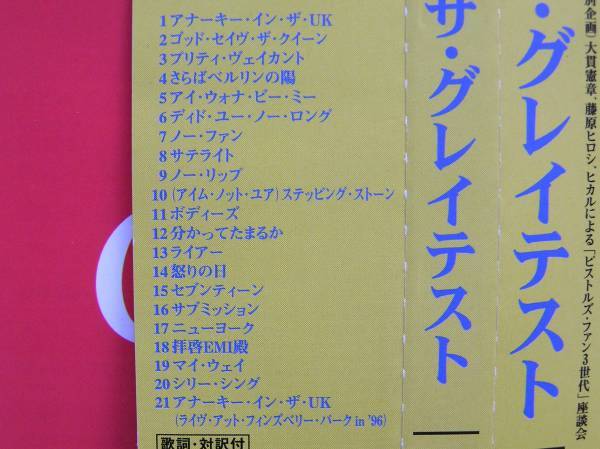 1 アナーキー・イン・ザ・UK
2 ゴッド・セイヴ・ザ・クイーン
3 プリティ・ヴェイカント
4 さらばベルリンの陽
5 アイ・ウォナ・ビー・ミー
6 ディド・ユー・ノー・ロング
7 ノー・ファン
8 サテライト
9 ノー・リップ
10 (アイム・ノット・ユア)ステッピング・ストーン
11 ボディーズ
12 分かってたまるか
13 ライアー
14 怒りの日
15 セブンティーン
16 サブミッション
17 ニューヨーク
18 拝啓EMI殿
19 マイ・ウェイ
20 シリー・シング
21 アナーキー・イン・ザ・UK
(ライヴ・アット・フィンズベリー・パーク in '96)
歌詞・対訳付
サ・グレイテスト
・グレイテスト
別企画) 大貫憲章、藤原ヒロシ、ヒカルによる「ピストルズ・ファン3世代」座談会